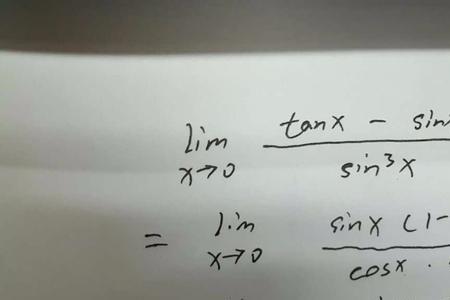 lim x→0 tanx - sin
sin³x
= lim x→0 sinx (1-
cosx ·